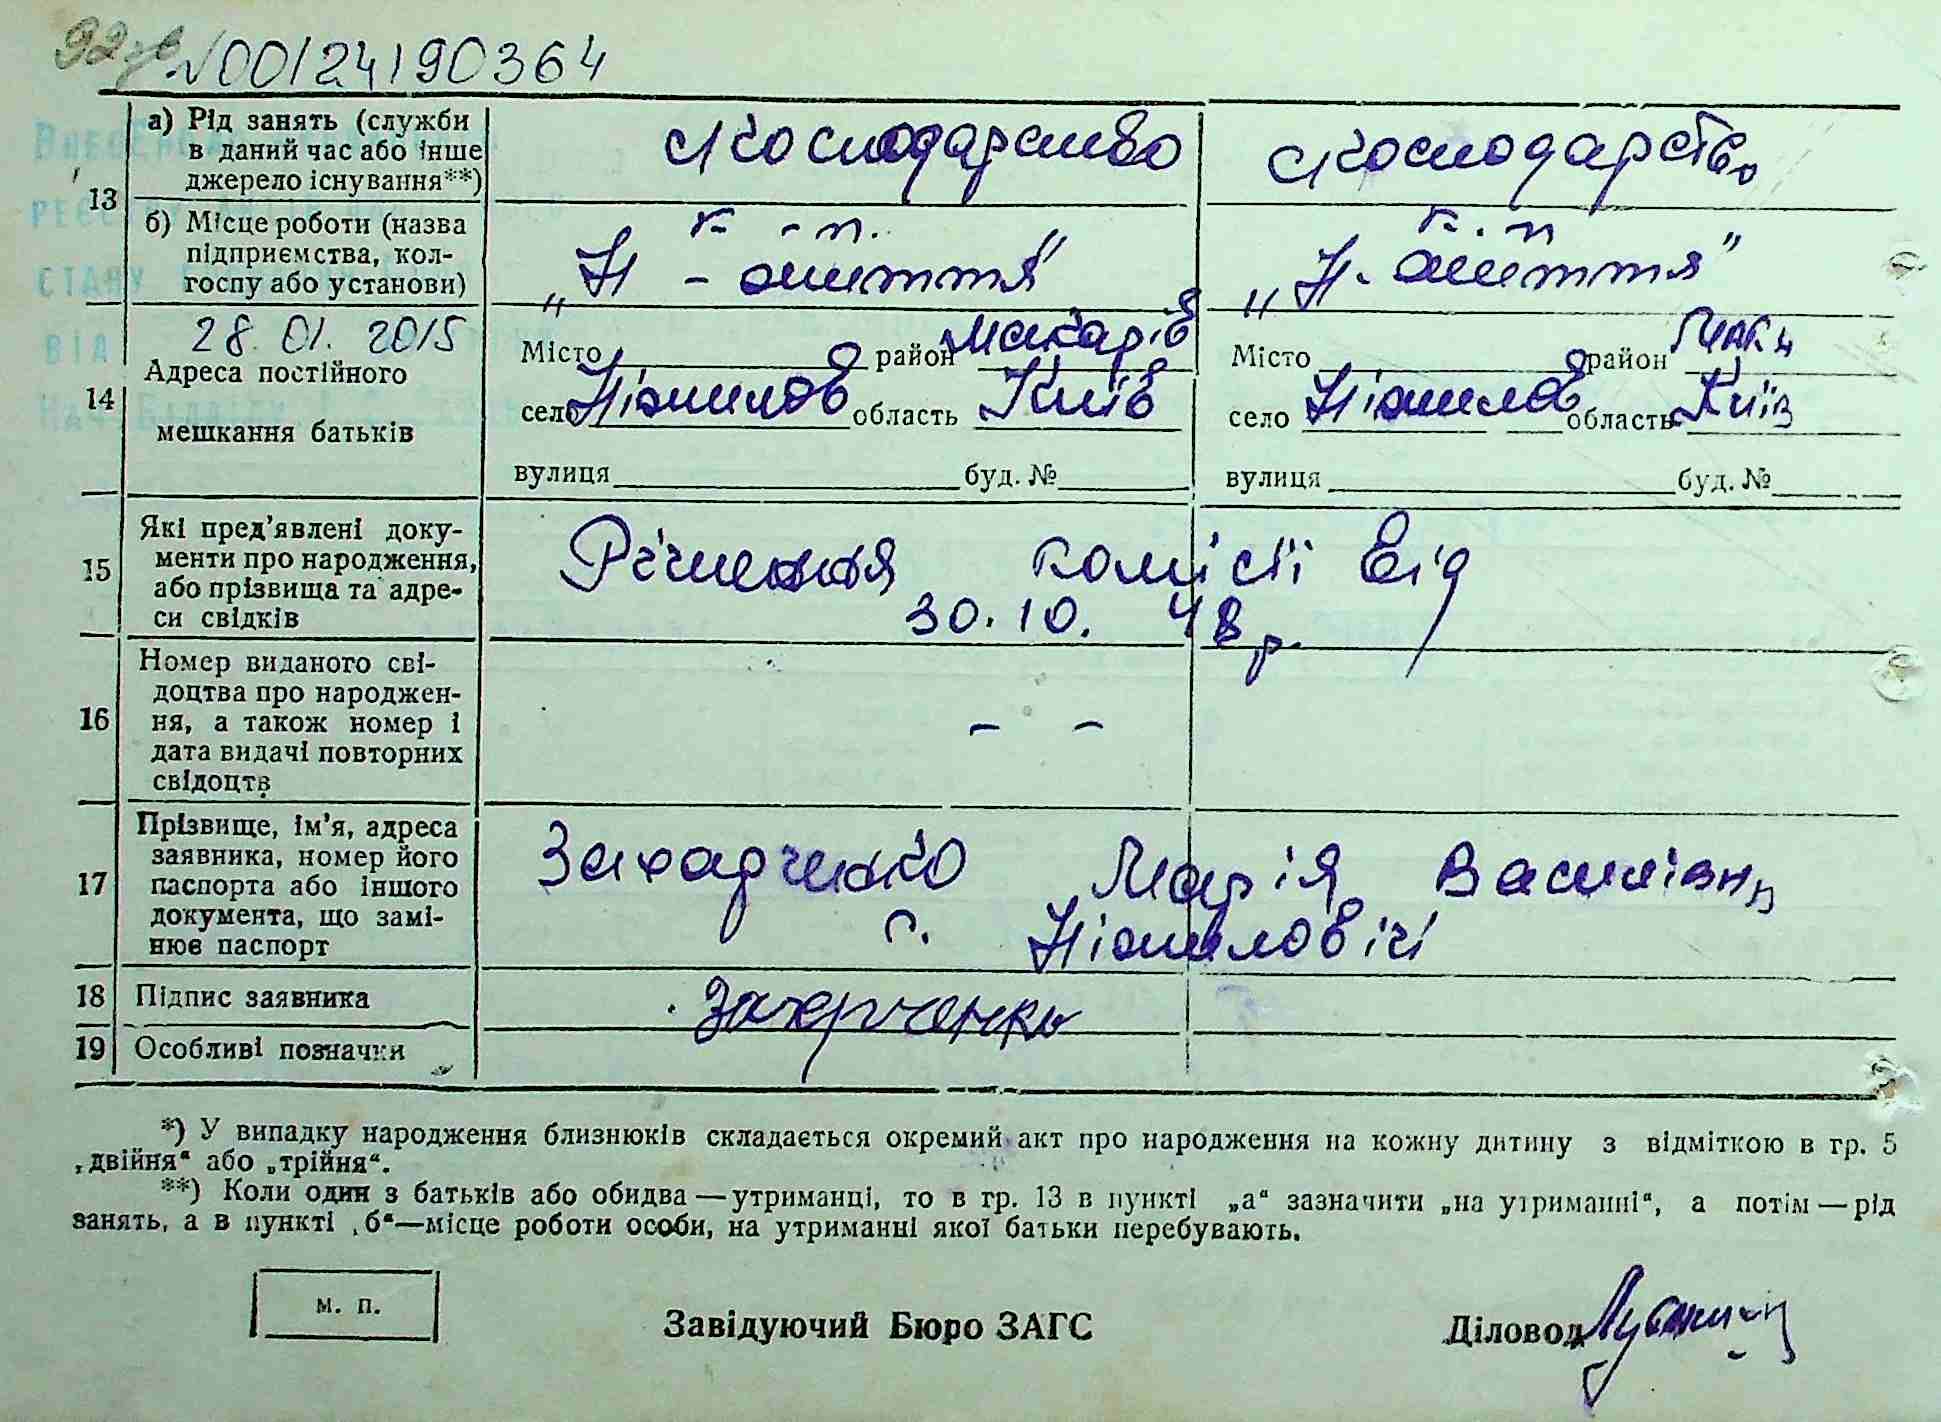 92 зв №00124190364
13
а) Рід занять (служби в даний час або інше джерело існування**)
с/господарство
с/господарство
б) Місце роботи (назва підприємства, колгоспу або установи)
к-п.
„Н - життя"
к.п
„Н. життя"
28.01.2015
14
Адреса постійного мешкання батьків
Місто район Макарів
село Ніжилов область Київ
вулиця буд. №
Місто район Мак
село Ніжилов область Київ
вулиця буд. №
15
Які пред'явлені документи про народження, або прізвища та адреси свідків
Рішення комісії від
30.10. 48 р.
16
Номер виданого свідоцтва про народження, а також номер і дата видачі повторних свідоцтв
– –
17
Прізвище, ім'я, адреса заявника, номер його паспорта або іншого документа, що замінює паспорт
Захарченко Марія Василівн
с. Ніжиловічі
18
Підпис заявника
Захарченко
19
Особливі позначки
*) У випадку народження близнюків складається окремий акт про народження на кожну дитину з відміткою в гр. 5
„двійня" або „трійня".
**) Коли один з батьків або обидва — утриманці, то в гр. 13 в пункті „а" зазначити „на утриманні", а потім — рід
занять, а в пункті „б"—місце роботи особи, на утриманні якої батьки перебувають.
м. п.
Завідуючий Бюро ЗАГС
Діловод